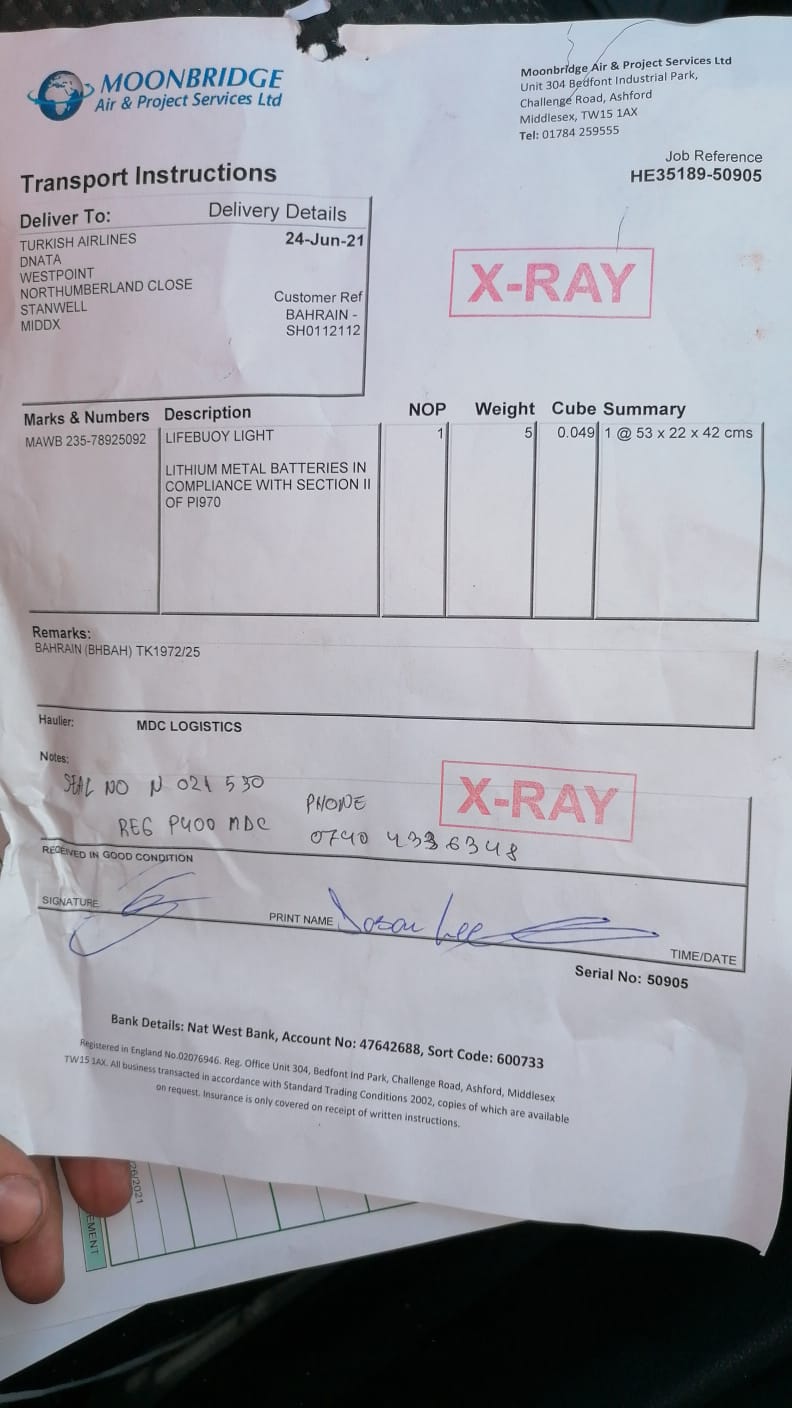 MOONBRIDGE
Air & Project Services Ltd
Moonbridge Air & Project Services Ltd
Unit 304 Bedfont Industrial Park,
Challenge Road, Ashford
Middlesex, TW15 1AX
Tel: 01784 259555
Job Reference
HE35189-50905
Transport Instructions
Deliver To:
Delivery Details
TURKISH AIRLINES
DNATA
WESTPOINT
NORTHUMBERLAND CLOSE
STANWELL
MIDDX
24-Jun-21
Customer Ref
BAHRAIN -
SH0112112
X-RAY
Marks & Numbers Description NOP Weight Cube Summary
MAWB 235-78925092 LIFEBUOY LIGHT 1 5 0.049 1 @ 53 x 22 x 42 cms
LITHIUM METAL BATTERIES IN
COMPLIANCE WITH SECTION II
OF PI970
Remarks:
BAHRAIN (BHBAH) TK1972/25
Haulier: MDC LOGISTICS
Notes:
SEAL NO N 021 530
REG P400 MDC
PHONE
0740 4336348
X-RAY
RECEIVED IN GOOD CONDITION
SIGNATURE
PRINT NAME Jason Lee
TIME/DATE
Serial No: 50905
Bank Details: Nat West Bank, Account No: 47642688, Sort Code: 600733
Registered in England No.02076946. Reg. Office Unit 304, Bedfont Ind Park, Challenge Road, Ashford, Middlesex
TW15 1AX. All business transacted in accordance with Standard Trading Conditions 2002, copies of which are available
on request. Insurance is only covered on receipt of written instructions.
26/2021
EMENT